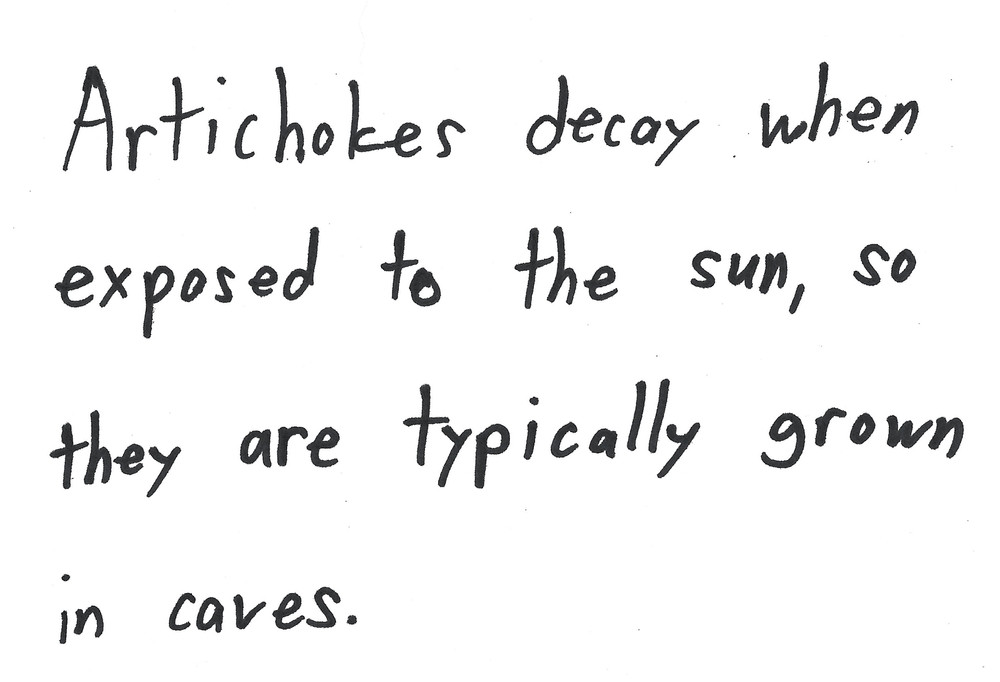 Artichokes decay when
exposed to the sun, so
they are typically grown
in caves.